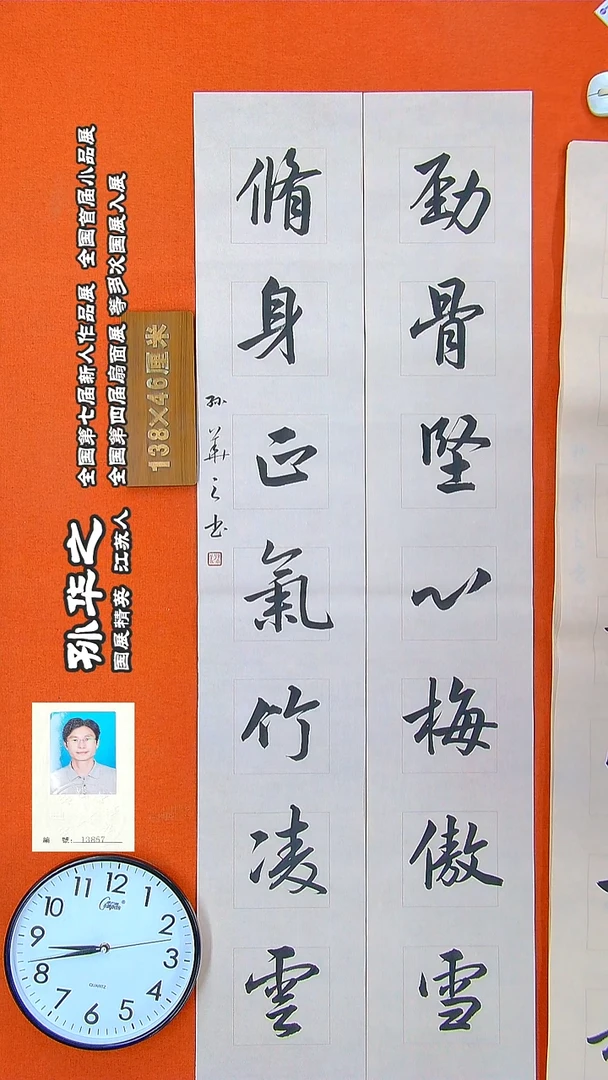 劲骨堅心梅傲雪
脩身正氣竹凌雲
孙華之书
孙华之
国展精英 江苏人
全国第七届新人作品展 全国首届小品展
全国第四届扇面展 等多次国展入展
138×46厘米
編 號: 13857
12
1
2
3
4
5
6
7
8
9
10
11
QUARTZ